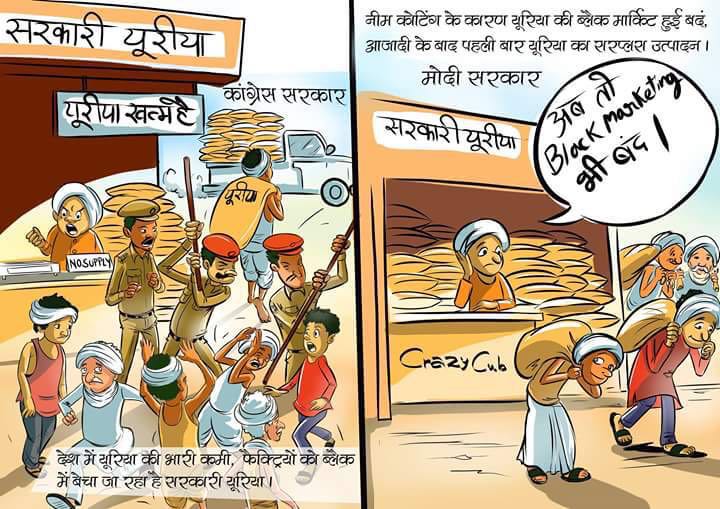 सरकारी यूरीया
यूरीया खत्म है
कांग्रेस सरकार
यूरीया
NO SUPPLY
देश में यूरिया की भारी कमी, फैक्ट्रियों को ब्लैक
में बेचा जा रहा है सरकारी यूरिया।
नीम कोटिंग के कारण यूरिया की ब्लैक मार्किट हुई बदं,
आजादी के बाद पहली बार यूरिया का सरप्लस उत्पादन।
मोदी सरकार
सरकारी यूरीया
अब तो
Black Marketing
भी बंद।
Crazy Cub